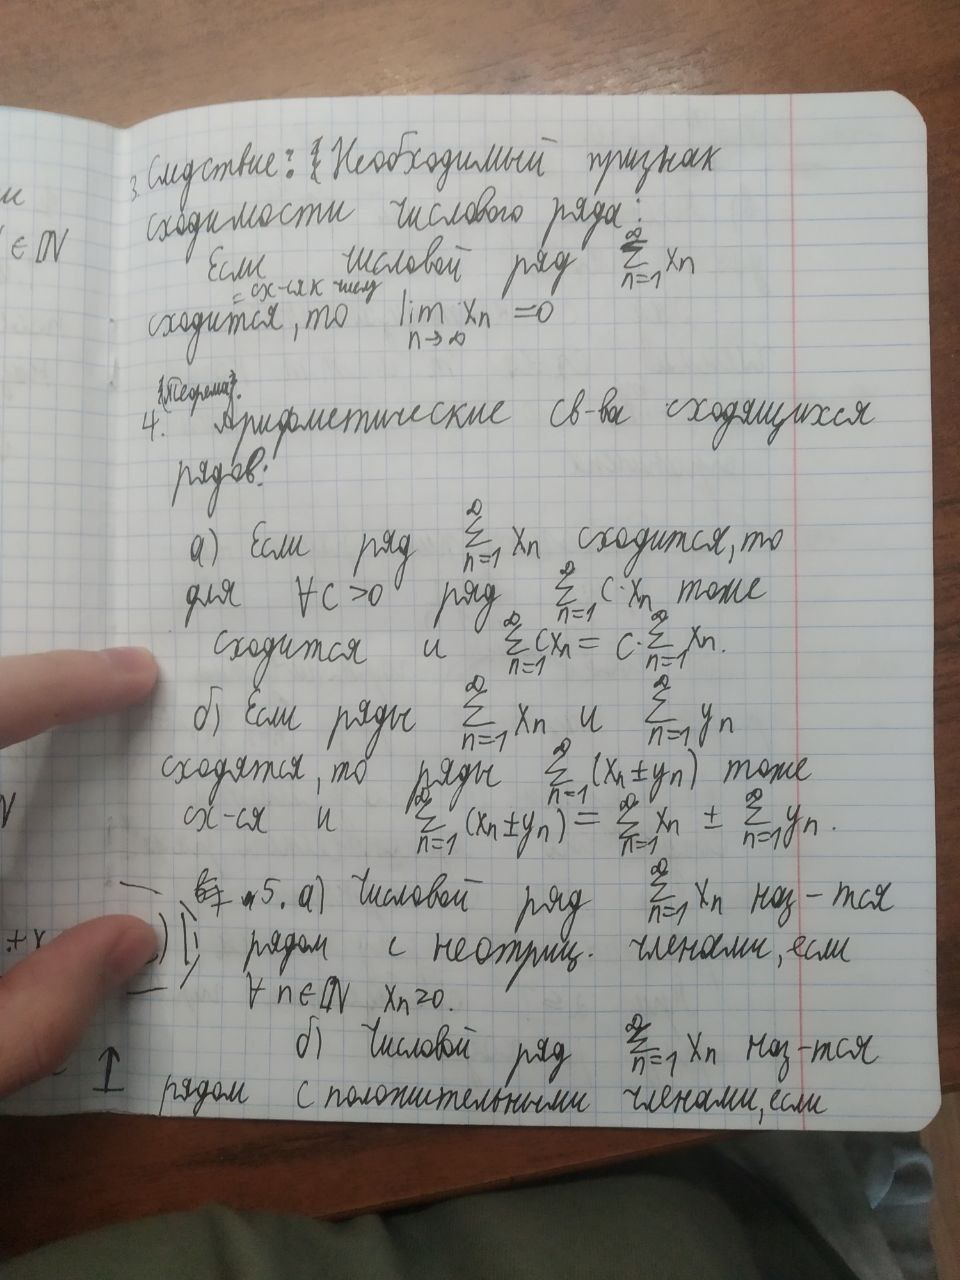 3. Следствие: { Необходимый признак
сходимости числового ряда:
Если числовой ряд ∑_{n=1}^∞ xₙ
= сх-ся к числу
сходится, то lim_{n→∞} xₙ = 0
{Теорема}.
4. Арифметические св-ва сходящихся
рядов:
а) Если ряд ∑_{n=1}^∞ xₙ сходится, то
для ∀ c > 0 ряд ∑_{n=1}^∞ c·xₙ тоже
сходится и ∑_{n=1}^∞ cxₙ = c·∑_{n=1}^∞ xₙ.
б) Если ряды ∑_{n=1}^∞ xₙ и ∑_{n=1}^∞ yₙ
сходятся, то ряды ∑_{n=1}^∞ (xₙ ± yₙ) тоже
сх-ся и ∑_{n=1}^∞ (xₙ ± yₙ) = ∑_{n=1}^∞ xₙ ± ∑_{n=1}^∞ yₙ.
5. а) Числовой ряд ∑_{n=1}^∞ xₙ наз-тся
рядом с неотриц. членами, если
∀ n ∈ ℕ xₙ ≥ 0.
б) Числовой ряд ∑_{n=1}^∞ xₙ наз-тся
рядом с положительными членами, если